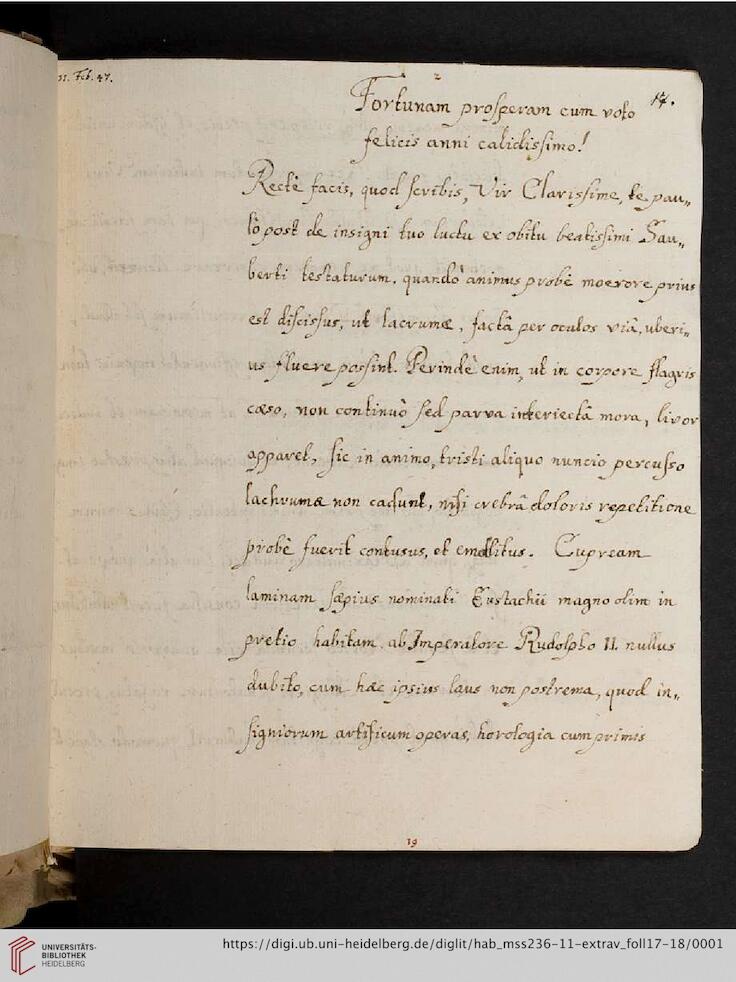 11. Feb. 47.
2
17.
Fortunam prosperam cum voto
felicis anni calidissimo!
Rectè facis, quod scribis, Vir Clarissime, te pau-
lò post de insigni tuo luctu ex obitu beatissimi Sau-
berti testaturum, quandò animus probè moerore prius
est discissus, ut lacrumæ, factâ per oculos viâ, uberi-
us fluere possint. Perindè enim, ut in corpore flagris
cæso, non continuò sed parva interiectâ mora, livor
apparet, sic in animo, tristi aliquo nuncio percusso
lachrumæ non cadunt, nisi crebrâ doloris repetitione
probè fuerit contusus, et emollitus. Cupream
laminam sæpius nominati Eustachii magno olim in
pretio habitam ab Imperatore Rudolpho II. nullus
dubito, cum hæc ipsius laus non postrema, quod in-
signiorum artificum operas, horologia cumprimis
19
UNIVERSITÄTS-
BIBLIOTHEK
HEIDELBERG
https://digi.ub.uni-heidelberg.de/diglit/hab_mss236-11-extrav_foll17-18/0001